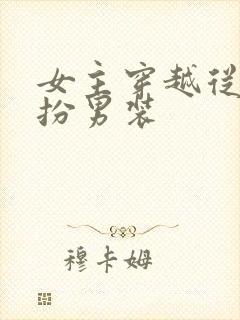 女主穿越従
扮男装
穆卡姆